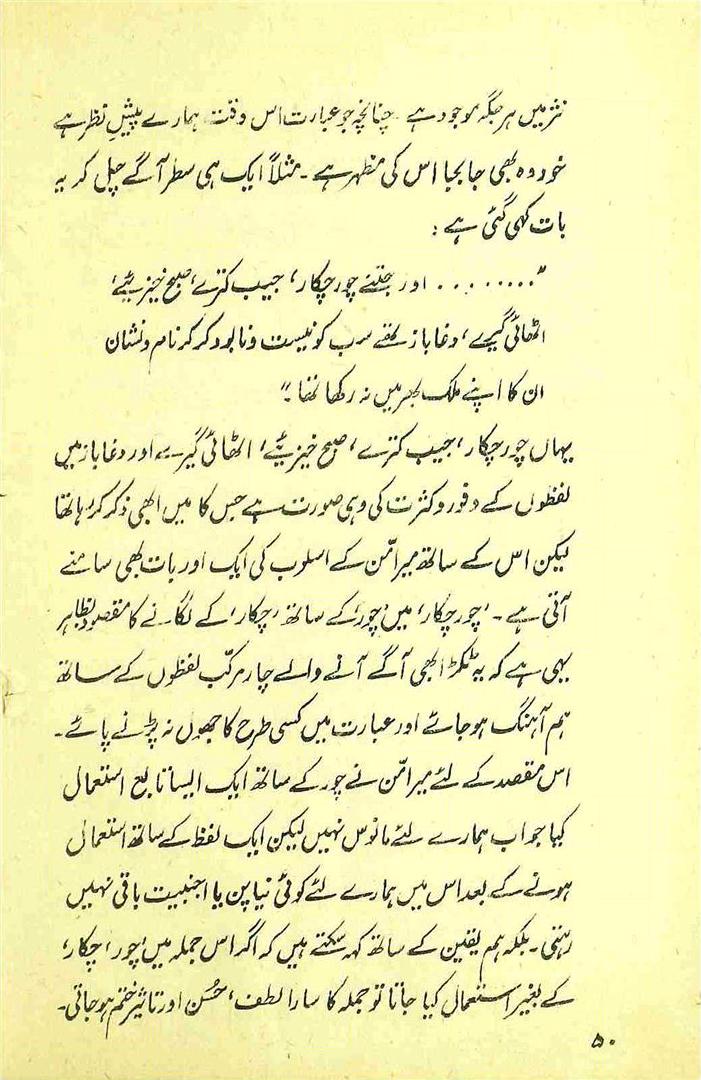 نثر میں ہر جگہ موجود ہے۔ چنانچہ جو عبارت اس وقت ہمارے پیشِ نظر ہے
خود وہ بھی جا بجا اس کی مظہر ہے۔ مثلاً ایک ہی سطر آگے چل کر یہ
بات کہی گئی ہے :
"......... اور جتنے چور چکار، جیب کترے، صبح خیزیئے،
اٹھائی گیرے، دغا باز تھے سب کو نیست و نابود کر کر نام و نشان
ان کا اپنے ملک بھر میں نہ رکھا تھا۔"
یہاں چور چکار، جیب کترے، صبح خیزیئے، اٹھائی گیرے اور دغا باز میں
لفظوں کے وفور و کثرت کی وہی صورت ہے جس کا میں ابھی ذکر کر رہا تھا
لیکن اس کے ساتھ میرامّن کے اسلوب کی ایک اور بات بھی سامنے
آتی ہے۔ 'چور چکار' میں 'چور' کے ساتھ 'چکار' کے لگانے کا مقصود بظاہر
یہی ہے کہ یہ ٹکڑا بھی آگے آنے والے چار مرکّب لفظوں کے ساتھ
ہم آہنگ ہو جائے اور عبارت میں کسی طرح کا جھول نہ پڑنے پائے۔
اس مقصد کے لئے میرامّن نے چور کے ساتھ ایک ایسا تابع استعمال
کیا جو اب ہمارے لئے مانوس نہیں لیکن ایک لفظ کے ساتھ استعمال
ہونے کے بعد اس میں ہمارے لئے کوئی نیا پن یا اجنبیت باقی نہیں
رہتی۔ بلکہ ہم یقین کے ساتھ کہہ سکتے ہیں کہ اگر اس جملہ میں 'چور'، 'چکار'
کے بغیر استعمال کیا جاتا تو جملہ کا سارا لطف، حُسن اور تاثیر ختم ہو جاتی۔
۵۰